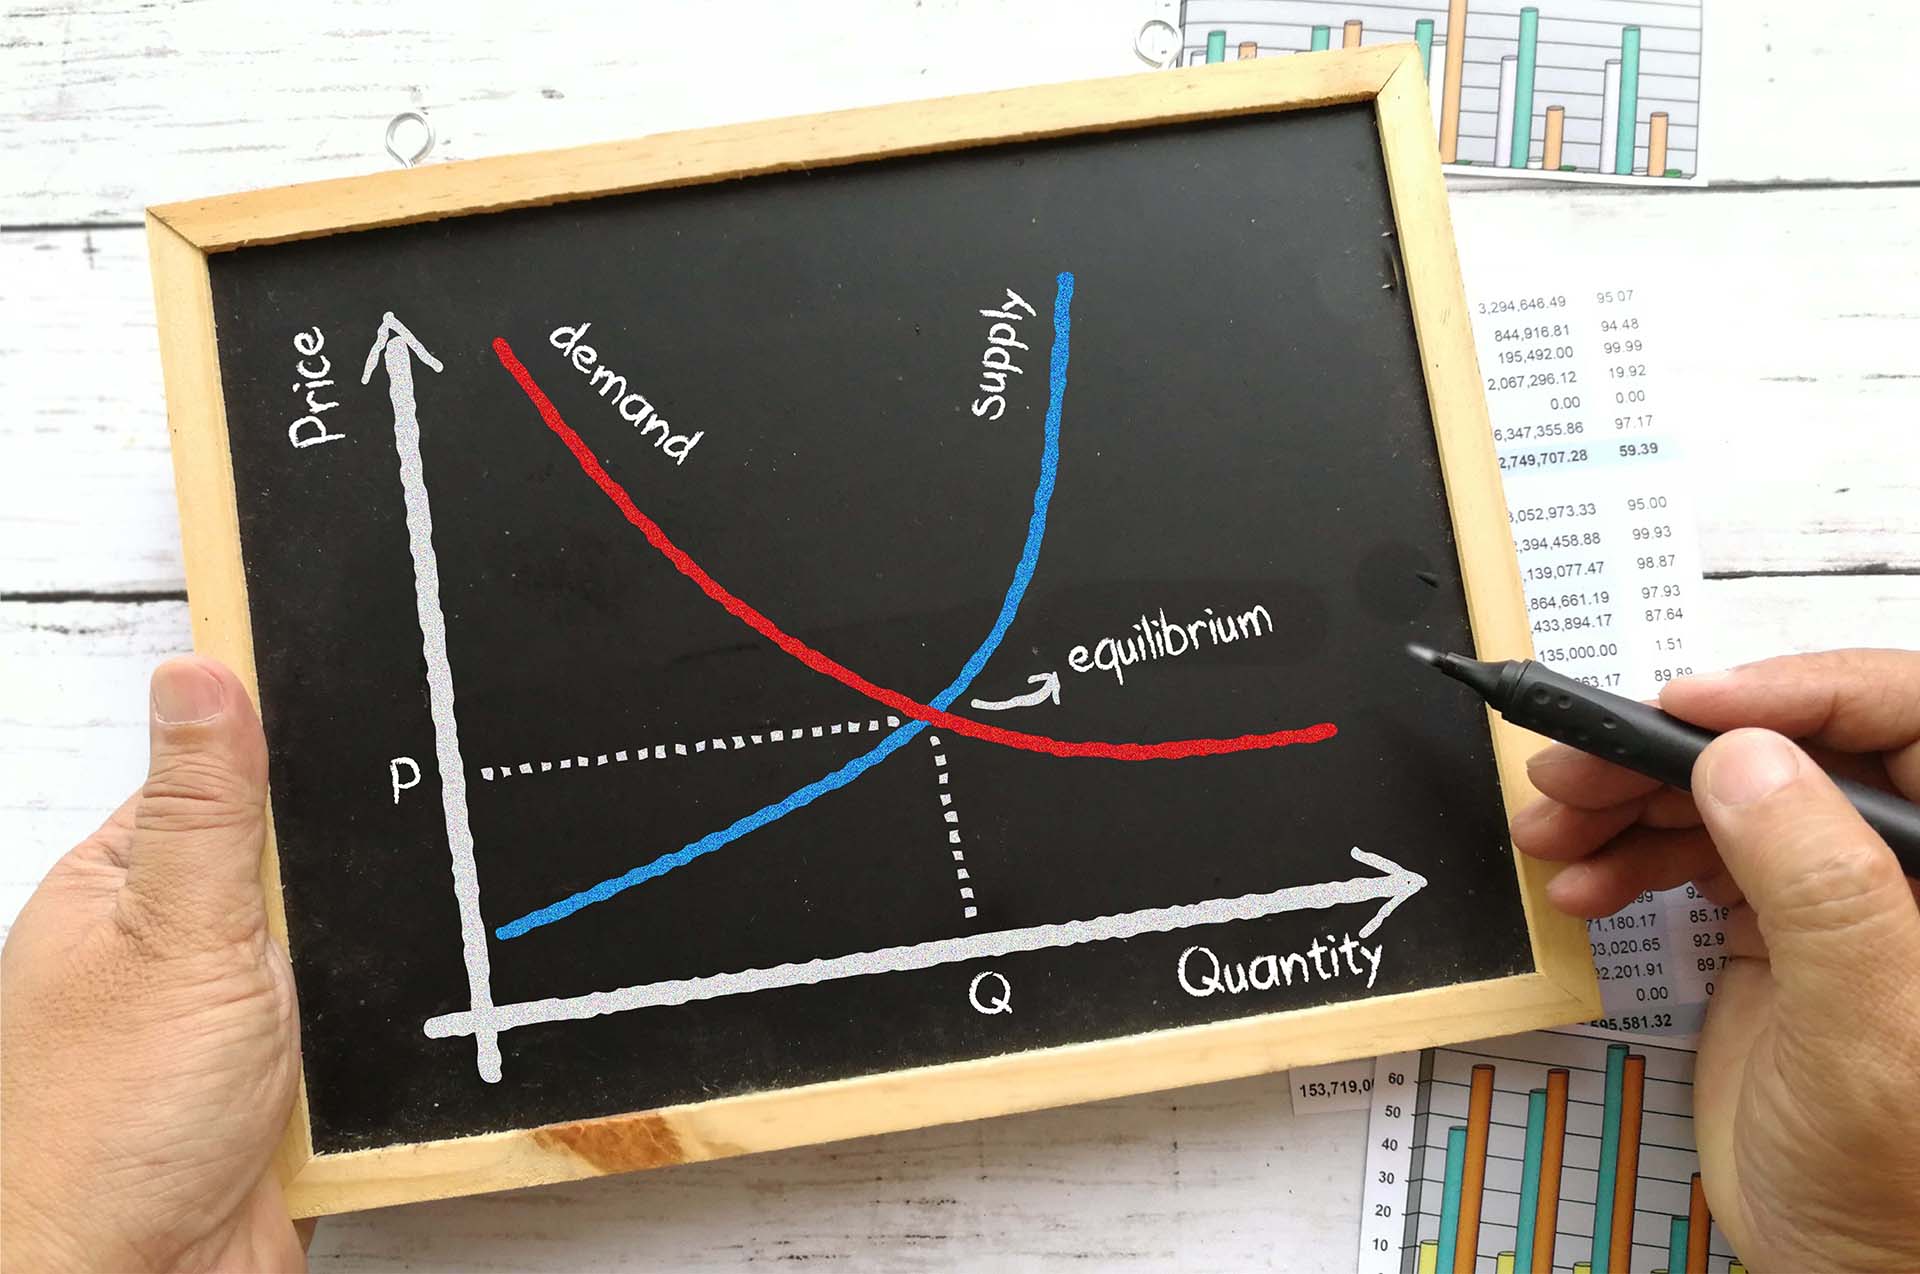 Price
demand
Supply
equilibrium
P
Q
Quantity
3,294,646.49 95.07
844,916.81 94.48
195,492.00 99.99
2,067,296.12 19.92
0.00 0.00
6,347,355.86 97.17
2,749,707.28 59.39
3,052,973.33 95.00
2,394,458.88 99.93
,139,077.47 98.87
,864,661.19 97.93
,433,894.17 87.64
135,000.00 1.51
63.17 89.89
.99
71,180.17 85.19
03,020.65 92.9
02,201.91 89.7
0.00 0
595,581.32
153,719,0
60
50
40
30
20
10